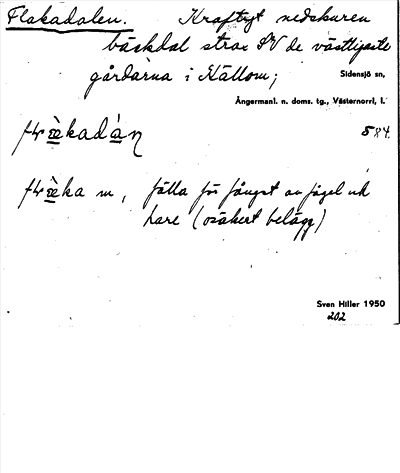 Flakadalen. Kraftigt nedskuren
bäckdal strax SV de västligaste
gårdarna i Källom;
Sidensjö sn,
Ångermanl. n. doms. tg., Västernorrl. l.
584.
fälla för fångst av fågel och
hare (osäkert belägg)
Sven Hiller 1950
202